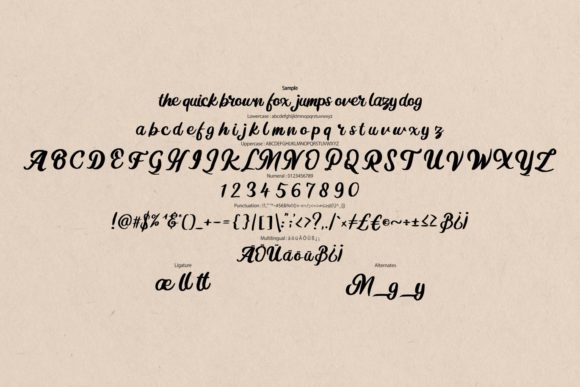 Sample
the quick brown fox jumps over lazy dog
Lowercase : abcdefghijklmnopqrstuvwxyz
a b c d e f g h i j k l m n o p q r s t u v w x y z
Uppercase : ABCDEFGHIJKLMNOPQRSTUVWXYZ
A B C D E F G H I J K L M N O P Q R S T U V W X Y Z
Numeral : 0123456789
1 2 3 4 5 6 7 8 9 0
Punctuation :
!@#$%^&*()_+-={}/[]\:";'<>?,./`×≠£€©~÷±≤≥ß¿¡
Multilingual : äöüÄÖÜß¿¡
ÄÖÜäöüß¿¡
Ligature
æ ll tt
Alternates
M_g_y